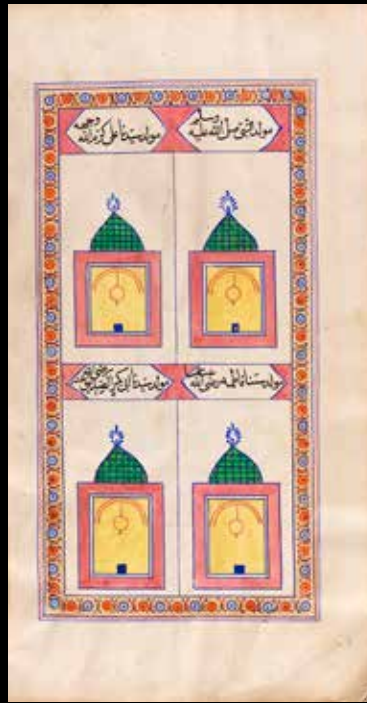 مولد النبي صلى الله عليه وسلم
مولد سيدنا علي كرم الله وجهه
مولد ستنا فاطمة رضي الله عنها
مولد سيدنا أبي بكر الصديق رضي الله عنه